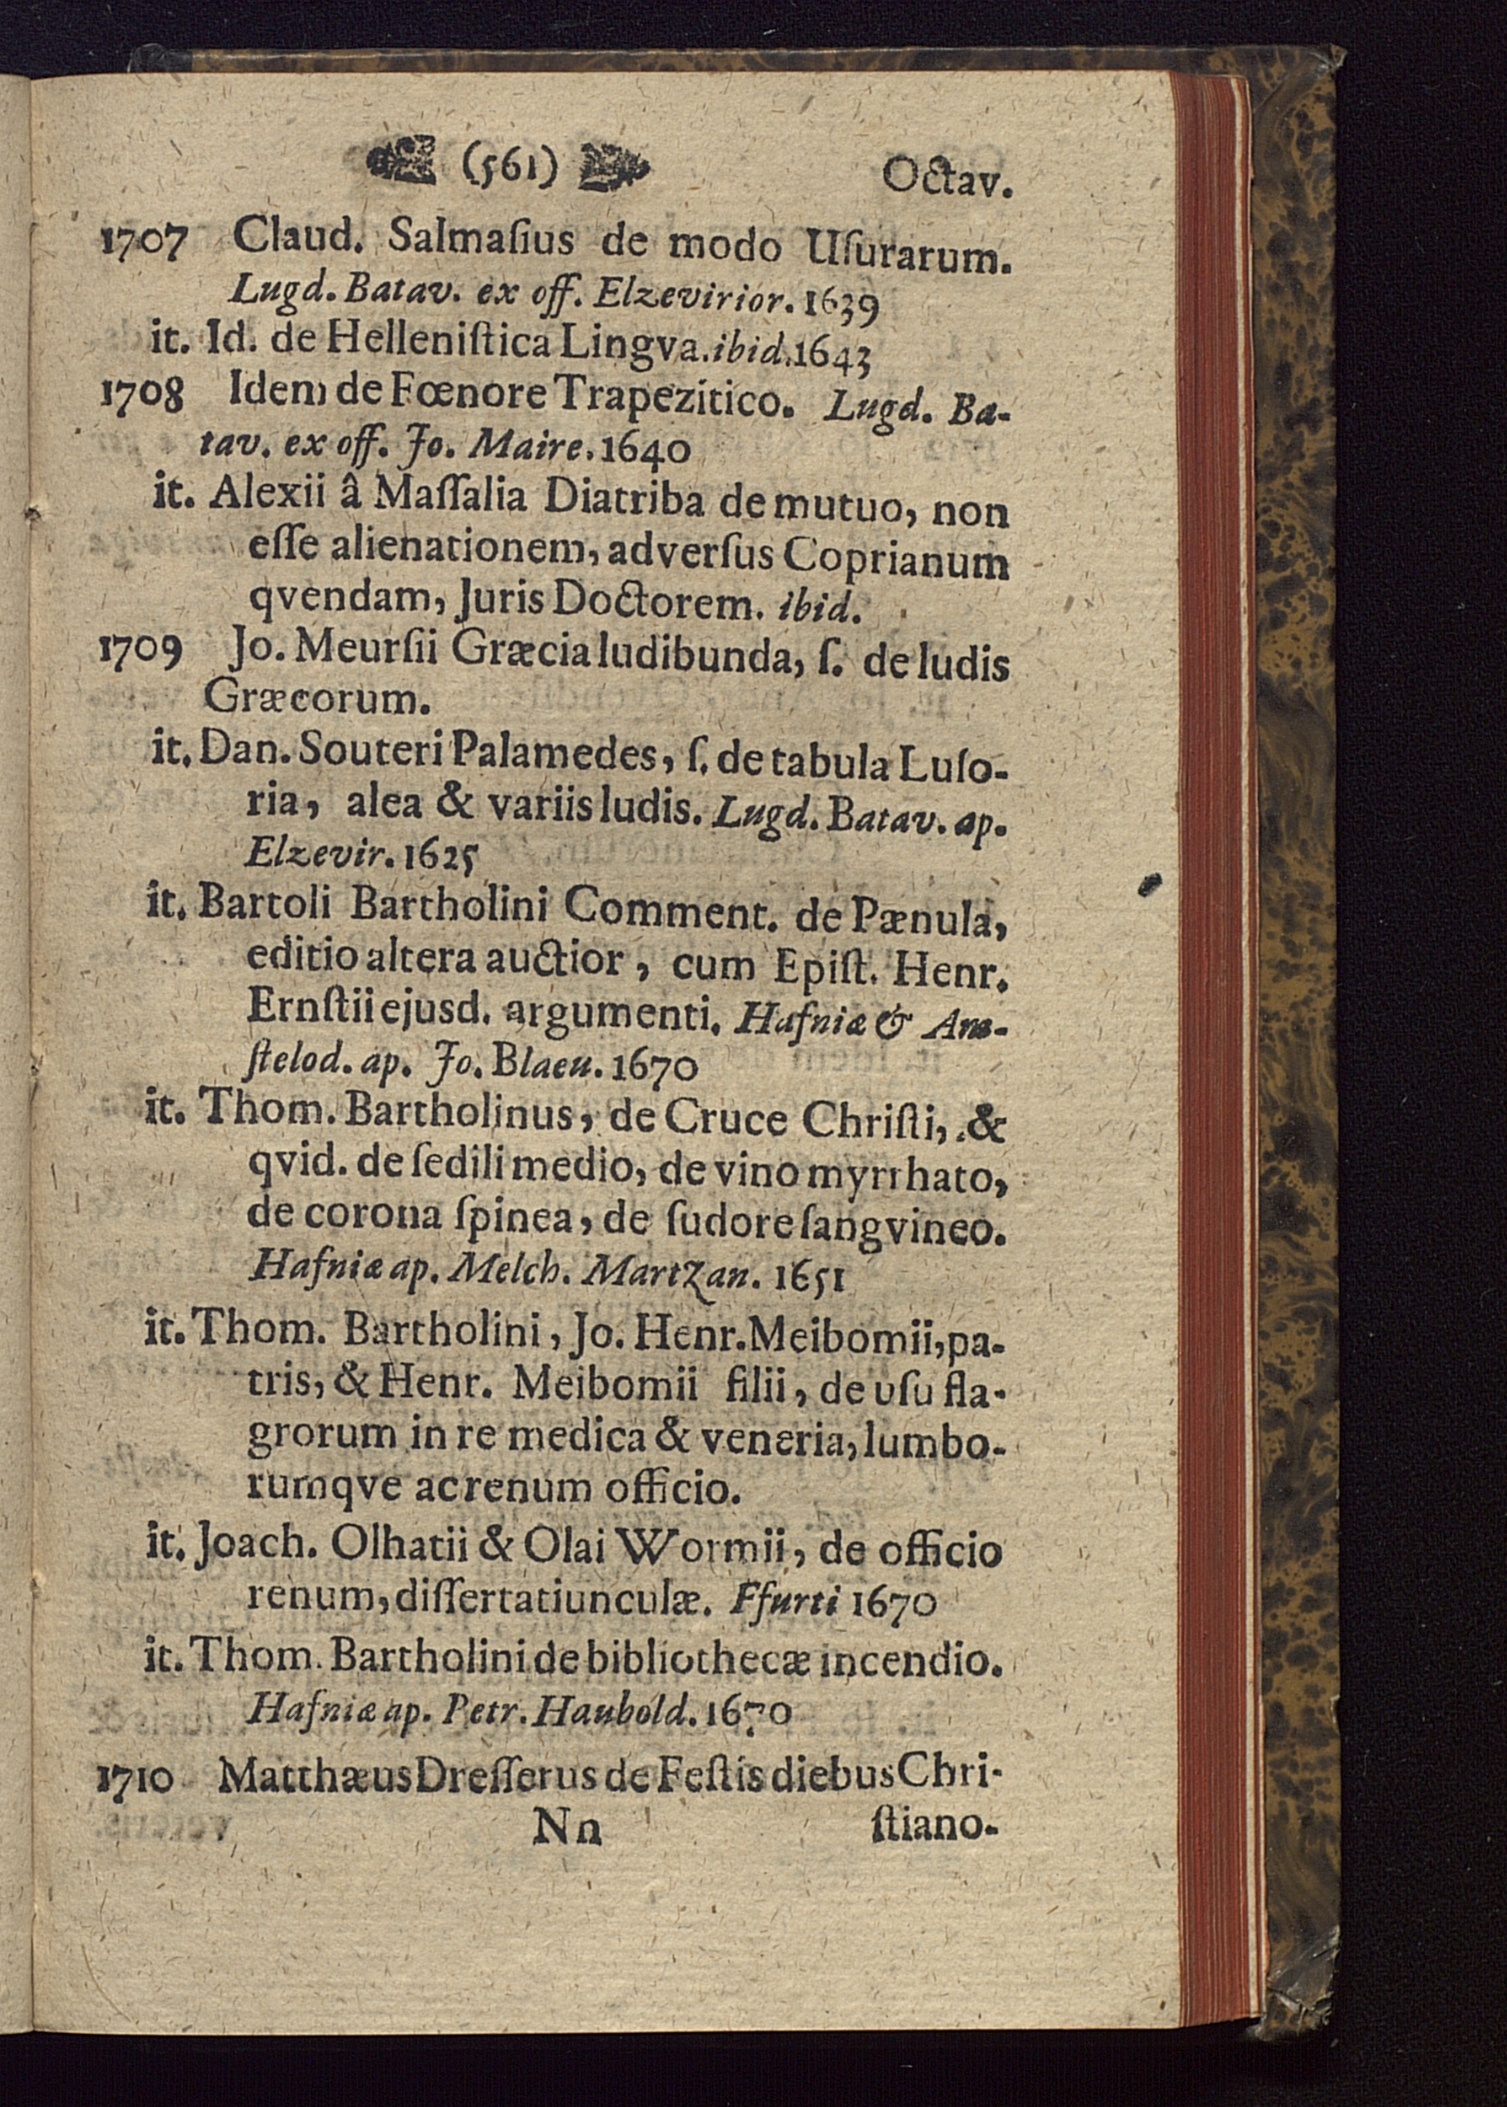 (561) Octav.
1707 Claud. Salmaſius de modo Uſurarum.
Lugd. Batav. ex off. Elzevirior. 1639
it. Id. de Helleniſtica Lingva. ibid. 1643
1708 Idem de Fœnore Trapezitico. Lugd. Ba-
tav. ex off. Jo. Maire. 1640
it. Alexii â Maſſalia Diatriba de mutuo, non
eſſe alienationem, adverſus Coprianum
qvendam, Juris Doctorem. ibid.
1709 Jo. Meurſii Græcia ludibunda, ſ. de ludis
Græcorum.
it. Dan. Souteri Palamedes, ſ. de tabula Luſo-
ria, alea & variis ludis. Lugd. Batav. ap.
Elzevir. 1625
it. Bartoli Bartholini Comment. de Pænula,
editio altera auctior, cum Epiſt. Henr.
Ernſtii ejusd. argumenti. Hafniæ & Am-
ſtelod. ap. Jo. Blaeu. 1670
it. Thom. Bartholinus, de Cruce Chriſti, &
qvid. de ſedili medio, de vino myrrhato,
de corona ſpinea, de ſudore ſangvineo.
Hafniæ ap. Melch. Martzan. 1651
it. Thom. Bartholini, Jo. Henr. Meibomii, pa-
tris, & Henr. Meibomii filii, de uſu fla-
grorum in re medica & veneria, lumbo-
rumqve ac renum officio.
it. Joach. Olhatii & Olai Wormii, de officio
renum, diſſertatiunculæ. Ffurti 1670
it. Thom. Bartholini de bibliothecæ incendio.
Hafniæ ap. Petr. Haubold. 1670
1710 Matthæus Dreſſerus de Feſtis diebus Chri-
Nn ſtiano-